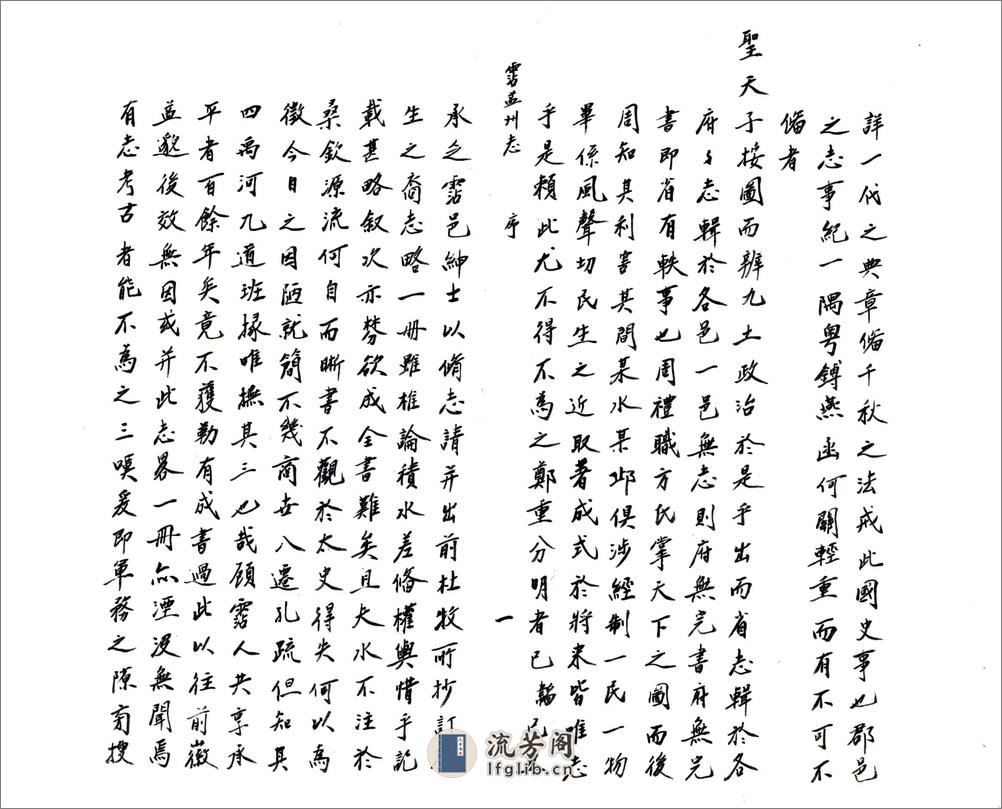 詳一代之典章備千秋之法戒此國史事也郡邑
之志事紀一隅粤鏄燕函何關輕重而有不可不
備者
聖天子按圖而辨九土政治於是乎出而省志輯於各
府々志輯於各邑一邑無志則府無完書府無完
書即省有軼事也周禮職方氏掌天下之圖而後
周知其利害其間某水某邱俱涉經制一民一物
畢係風聲切民生之近取著成式於將来皆唯志
乎是賴此尤不得不為之鄭重分明者已
霑益州志 序 一
承乏霑邑紳士以脩志請并出前杜牧所抄訂
生之裔志略一册雖椎論積水差脩權輿惜乎記
載甚略叙次亦棼欲成全書難矣且夫水不注於
桑欽源流何自而晰書不觀於太史得失何以為
徵今日之因陋就簡不幾商世八遷孔疏但知其
四禹河九道班掾唯撫其三也哉顧霑人共享承
平者百餘年矣竟不獲勒有成書過此以往前徽
益邈後效無因或并此志畧一冊亦湮没無聞焉
有志考古者能不為之三嘆爰即軍務之隙旁搜
流芳阁
lfglib.cn